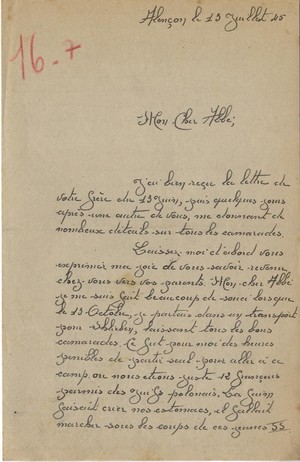 Alençon le 13 Juillet 45
16-7
Mon Cher Abbé,
J'ai bien reçu la lettre de
votre frère du 19 Juin, puis quelques jours
après une autre de vous, me donnant de
nombeux détails sur tous les camarades.
Laissez moi d'abord vous
exprimer ma joie de vous savoir revenu
chez vous vers vos parents. Mon cher Abbé
je me suis fait beaucoup de souci lorsque
le 13 Octobre, je partais dans un transport
pour laissant tous les bons
camarades. Ce fut pour moi des heures
penibles de partir seul pour aller à ce
camp, ou nous étions juste 12 français
parmis des juifs polonais. La faim
faisait crier nos estomacs, il fallait
marcher sous les coups de ces jeunes SS